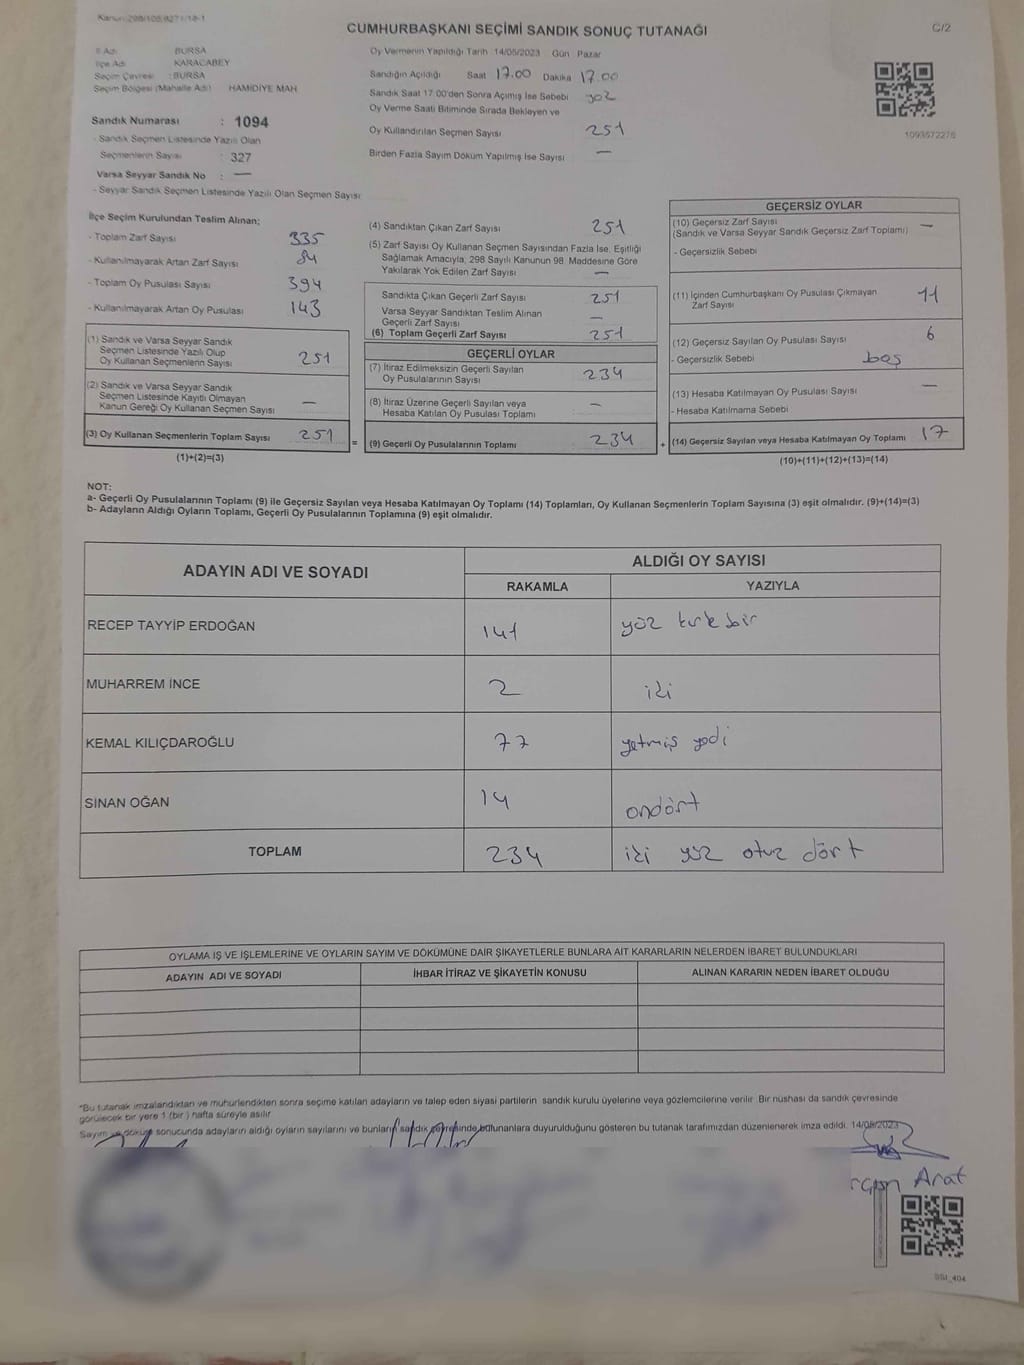 CUMHURBAŞKANI SEÇİMİ SANDIK SONUÇ TUTANAĞI
C/2
İl Adı BURSA
İlçe Adı KARACABEY
Seçim Çevresi : BURSA
Seçim Bölgesi (Mahalle Adı) HAMİDİYE MAH
Sandık Numarası : 1094
- Sandık Seçmen Listesinde Yazılı Olan
Seçmenlerin Sayısı : 327
Varsa Seyyar Sandık No : —
- Seyyar Sandık Seçmen Listesinde Yazılı Olan Seçmen Sayısı
Oy Vermenin Yapıldığı Tarih 14/05/2023 Gün Pazar
Sandığın Açıldığı Saat 17.00 Dakika 17.00
Sandık Saat 17.00'den Sonra Açımış İse Sebebi
Oy Verme Saati Bitiminde Sırada Bekleyen ve
Oy Kullandırılan Seçmen Sayısı 251
Birden Fazla Sayım Döküm Yapılmış İse Sayısı —
1093572276
İlçe Seçim Kurulundan Teslim Alınan;
- Toplam Zarf Sayısı 335
- Kullanılmayarak Artan Zarf Sayısı 84
- Toplam Oy Pusulası Sayısı 394
- Kullanılmayarak Artan Oy Pusulası 143
(1) Sandık ve Varsa Seyyar Sandık
Seçmen Listesinde Yazılı Olup
Oy Kullanan Seçmenlerin Sayısı 251
(2) Sandık ve Varsa Seyyar Sandık
Seçmen Listesinde Kayıtlı Olmayan
Kanun Gereği Oy Kullanan Seçmen Sayısı —
(3) Oy Kullanan Seçmenlerin Toplam Sayısı 251
(1)+(2)=(3)
(4) Sandıktan Çıkan Zarf Sayısı 251
(5) Zarf Sayısı Oy Kullanan Seçmen Sayısından Fazla İse, Eşitliği
Sağlamak Amacıyla, 298 Sayılı Kanunun 98. Maddesine Göre
Yakılarak Yok Edilen Zarf Sayısı —
Sandıkta Çıkan Geçerli Zarf Sayısı 251
Varsa Seyyar Sandıktan Teslim Alınan
Geçerli Zarf Sayısı —
(6) Toplam Geçerli Zarf Sayısı 251
GEÇERLİ OYLAR
(7) İtiraz Edilmeksizin Geçerli Sayılan
Oy Pusulalarının Sayısı 234
(8) İtiraz Üzerine Geçerli Sayılan veya
Hesaba Katılan Oy Pusulası Toplamı —
= (9) Geçerli Oy Pusulalarının Toplamı 234
GEÇERSİZ OYLAR
(10) Geçersiz Zarf Sayısı —
(Sandık ve Varsa Seyyar Sandık Geçersiz Zarf Toplamı)
- Geçersizlik Sebebi
(11) İçinden Cumhurbaşkanı Oy Pusulası Çıkmayan
Zarf Sayısı 11
(12) Geçersiz Sayılan Oy Pusulası Sayısı 6
- Geçersizlik Sebebi boş
(13) Hesaba Katılmayan Oy Pusulası Sayısı —
- Hesaba Katılmama Sebebi
+ (14) Geçersiz Sayılan veya Hesaba Katılmayan Oy Toplamı 17
(10)+(11)+(12)+(13)=(14)
NOT:
a- Geçerli Oy Pusulalarının Toplamı (9) ile Geçersiz Sayılan veya Hesaba Katılmayan Oy Toplamı (14) Toplamları, Oy Kullanan Seçmenlerin Toplam Sayısına (3) eşit olmalıdır. (9)+(14)=(3)
b- Adayların Aldığı Oyların Toplamı, Geçerli Oy Pusulalarının Toplamına (9) eşit olmalıdır.
ADAYIN ADI VE SOYADI ALDIĞI OY SAYISI
RAKAMLA YAZIYLA
RECEP TAYYİP ERDOĞAN 141 yüz kırk bir
MUHARREM İNCE 2 iki
KEMAL KILIÇDAROĞLU 77 yetmiş yedi
SİNAN OĞAN 14 ondört
TOPLAM 234 iki yüz otuz dört
OYLAMA İŞ VE İŞLEMLERİNE VE OYLARIN SAYIM VE DÖKÜMÜNE DAİR ŞİKAYETLERLE BUNLARA AİT KARARLARIN NELERDEN İBARET BULUNDUKLARI
ADAYIN ADI VE SOYADI İHBAR İTİRAZ VE ŞİKAYETİN KONUSU ALINAN KARARIN NEDEN İBARET OLDUĞU
*Bu tutanak imzalandıktan ve mühürlendikten sonra seçime katılan adayların ve talep eden siyasi partilerin sandık kurulu üyelerine veya gözlemcilerine verilir. Bir nüshası da sandık çevresinde
görülecek bir yere 1 (bir ) hafta süreyle asılır
Sayım ve döküm sonucunda adayların aldığı oyların sayılarını ve bunların sandık çevresinde bulunanlara duyurulduğunu gösteren bu tutanak tarafımızdan düzenlenerek imza edildi. 14/05/2023
Arat
SSI_404